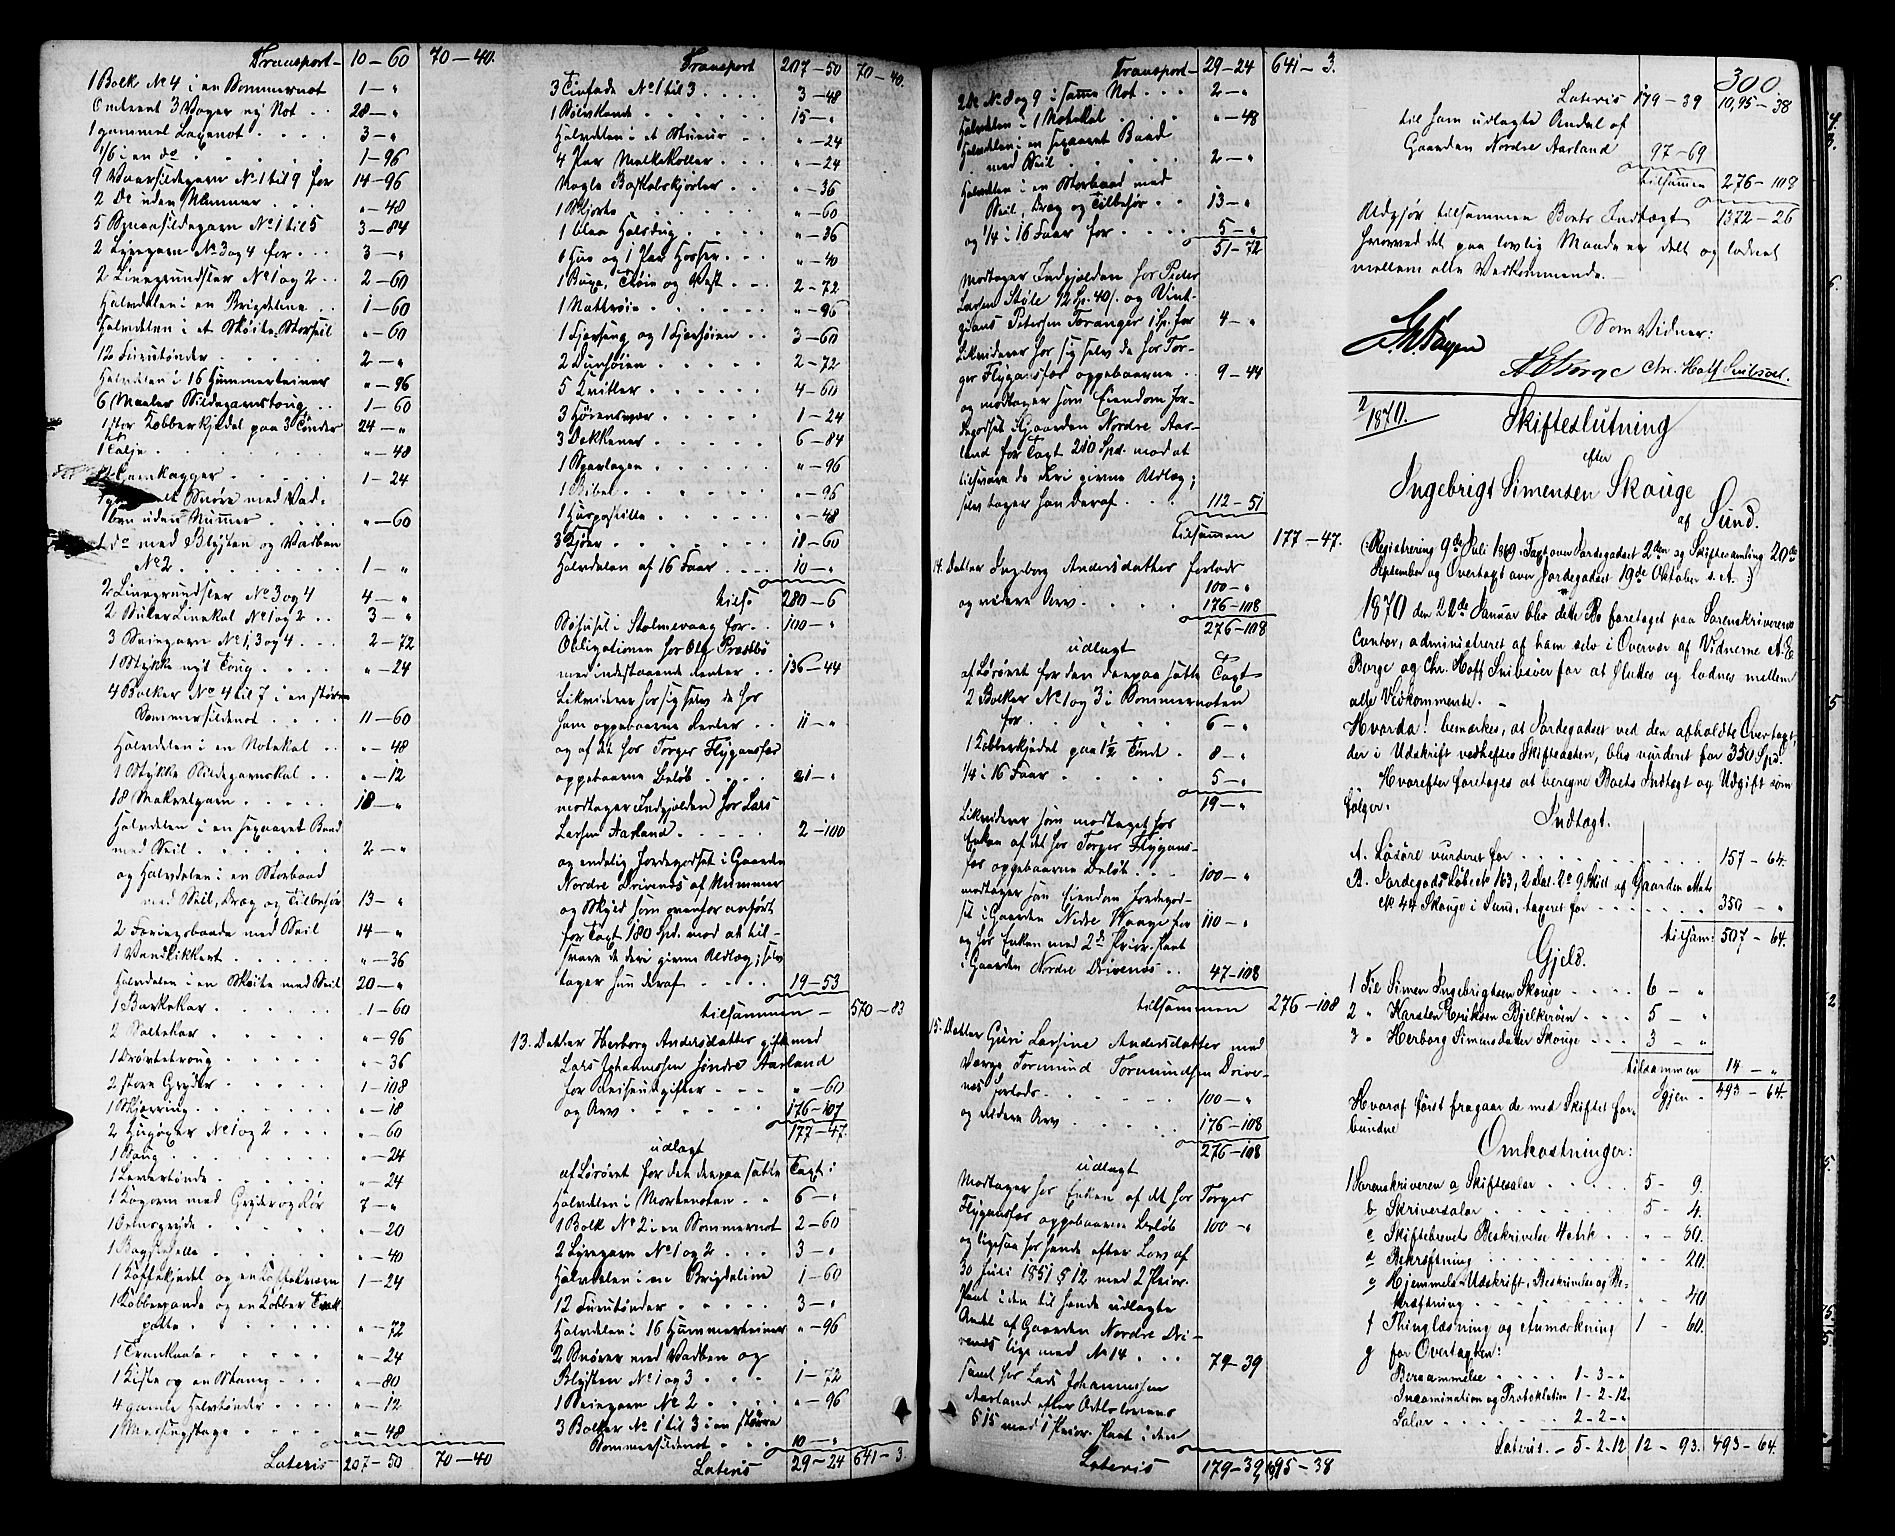 Transport - 10 - 60 70 - 40.
1 Bolk No 4 i en Sommernot 1 - "
Omtrent 3 Vager ny Not 28 - "
1 gammel Laxenot 3 - "
1/6 i en do 1 - 96
9 Vaarsildegarn No 1 til 9 for 14 - 96
2 de uden Nummer " - 48
5 Smaasildegarn No 1 til 5 3 - 84
2 Lyregarn No 3 og 4 for 3 - "
2 Linegrundsler No 1 og 2 2 - 60
Halvdelen i en Brigdeline 1 - 60
Halvdelen i et Skøite Storseil " - 60
12 Furutønder 2 - "
Halvdelen i 16 Hummerteiner " - 96
6 Maaler Sildegarnstoug 1 - 60
1 stor Kobberkjedel paa 3 Tønder 24 - "
1 Talje " - 48
Garnkagger 1 - 24
Snøre med Vad-
ben uden Nummer " - 60
1 do med Blysten og Vadben
No 2 1 - "
2 Linegrundsler No 3 og 4 4 - "
2 Linekal No 1 og 2 3 - "
3 Seiegarn No 1, 3 og 4 2 - 72
1 Stykke nyt Toug " - 24
4 Bolker No 4 til 7 i en større
Sommersildenot 11 - 60
Halvdelen i en Notekal " - 48
1 Stykke Sildegarnskal " - 12
18 Makrelgarn 18 - "
Halvdelen i en sexaaret Baad
med Seil 2 - "
og Halvdelen i en Storbaad
med Seil, Dræg og Tilbehør 13 - "
2 Færingsbaade med Seil 14 - "
1 Vandkikkert " - 36
Halvdelen i en Skøite med Seil 20 - "
1 Barkekar 1 - 60
2 Saltekar " - 96
1 Drøvtetroug " - 36
2 store Gryder 1 - 108
1 Skjærring " - 18
2 No 1 og 2 " - 60
1 Saug " - 24
1 tønde " - 24
1 Kogovn med Gryde og Rør 7 - "
1 Ovnsgryde " - 20
1 Bagstehelle " - 40
1 Kaffekjedel og en Kaffekværn 1 - 24
1 Kobberpande og en Kobber
potte " - 72
1 " - 24
1 Kiste og en Stamp " - 80
4 gamle Halvtønder " - 12
1 Messingstage " - 48
Lateris 207 - 50 70 - 40
Transport 207 - 50 70 - 40.
3 Tinfade No 1 til 3 3 - 48
1 Sølvskaal 15 - "
Halvdelen i et " - 24
4 Par Melkekoller " - 24
Nogle " - 36
1 Skjorte " - 60
1 blaa Halsdug " - 36
1 Hue og 1 Par Hoser " - 40
1 Buxe, Trøie og Vest 2 - 72
1 Nattrøie " - 96
1 Fjerseng og 1 Fjerhøien 3 - 60
2 Dunhøien 2 - 72
5 Kvitler 4 - 60
3 Høiensvær 1 - 24
3 Dækkener 6 - 84
1 Sparlagen " - 96
1 Bibel " - 96
1 Huspostille " - 48
3 Kjøer 18 - 60
Halvdelen af 16 Faar 10 - "
tils. 280 - 6
Søhusel i Stolmevaag for 100 - "
Obligationen hos Ole Præstbø
med indestaaende Renter 136 - 44
Likviderer hos sig selv de hos
ham oppebaarne Renter 11 - "
og af det hos Torger Flygansfær
oppebaarne Beløb 21 - "
modtager Indgjælden hos Lars
Larsen Aarland 2 - 100
og endelig Jordegodset i Gaarden
Nordre Drivenes af Nummer
og Skyld som ovenfor anført
for Taxt 180 Spd. mod at til-
svare de deri givne Udlæg; selv
tager hun deraf 19 - 53
tilsammen - 570 - 83
13. Datter Herborg Andersdatter gift med
Lars Johannessen Søndre Aarland
for Reiseudgifter " - 60
og Arv 176 - 107
177 - 47.
udlagt
af Løsøret for det derpaa satte Taxt:
Halvdelen i Mortenoten 6 - "
1 Bolk No 2 i en Sommernot 2 - 60
2 Lyregarn No 1 og 2 3 - "
Halvdelen i en Brigdeline 1 - 60
12 Furutønder 3 - "
Halvdelen i 16 Hummerteiner " - 96
2 Snører med Vadben og
Blysten No 1 og 3 1 - 72
1 Seiegarn No 2 " - 96
3 Bolker No 1 til 3 i en større
Sommersildenot 10 - "
Lateris 29 - 24 641 - 3.
Transport - 29 - 24 641 - 3.
2de No 8 og 9 i samme Not 2 - "
Halvdelen i 1 Notekal " - 48
Halvdelen i en sexaaret Baad
med Seil 2 - "
Halvdelen i en Storbaad med
Seil, Dræg og Tilbehør 13 - "
og 1/4 i 16 Faar for 5 - "
51 - 72
Modtager Indgjælden hos Peder
Larsen Støle 2 Sp. 40 s. og Vint-
gians Petersen Toranger 1 Sp. for 4 - "
Likviderer hos sig selv de hos Tor-
ger Flygansfær oppebaarne 9 - 44
og modtager som Eiendom Jor-
degodset i Gaarden Nordre Aar-
land for Taxt 210 Spd. mod at
tilsvare de deri givne Udlæg;
selv tager han deraf 112 - 51
tilsammen 177 - 47.
14. Datter Ingeborg Andersdatter forlods
100 - "
og videre Arv 176 - 108
276 - 108
udlagt
af Løsøret for den derpaa satte Taxt
2 Bolker No 1 og 3 i Sommernoten
for 6 - "
1 Kobberkjedel paa 1 1/2 Tønde 8 - "
1/4 i 16 Faar 5 - "
19 - "
Likviderer som modtaget hos
Enken af det hos Torger Flygans-
fær oppebaarne Beløb 100 - "
modtager som Eiendom Jordegod-
set i Gaarden Nedre Waage for 110 - "
og hos Enken med 2de Prior. Pant
i Gaarden Nordre Drivenes 47 - 108
tilsammen 276 - 108
15. Datter Guri Larsine Andersdatter med
Værge Tormund Tormundsen Drive-
nes forlods 100 - "
og videre Arv 176 - 108
276 - 108
udlagt
Modtager hos Enken af det hos Torger
Flygansfær oppebaarne Beløb 100 - "
og ligesaa hos hende efter Lov af
30 Juli 1851 § 12 med 2 Prior.
Pant i den til hende udlagte
Andel af Gaarden Nordre Dri-
venes lige med No 14 79 - 39
samt hos Lars Johannessen
Aarland efter Odelslovens
§ 15 med 1 Prior. Pant i den
Lateris 179 - 39 1095 - 38
300
Lateris 179 - 39 10,95 - 38
til ham udlagte Andel af
Gaarden Nordre Aarland 97 - 69
tilsammen 276 - 108
Udgjør tilsammen Boets Indtægt 1372 - 26
hvorved det paa lovlig Maade er delt og lodnet
mellem alle Vedkommende. -
Som Vidner:
A E Borge Chr. Hoff Snibsøer.
2/1870. Skifteslutning
efter
Ingebrigt Simensen Skouge
af Sund.
(Registrering 9de Juli 1869, Taxt over Jordegodset 2den og Skiftesamling 20de
September og Overtaxt over Jordegodset 19de Oktober s. A.:)
1870 den 22de Januar blev dette Bo foretaget paa Sorenskriverens
Contor, administreret af ham selv i Overvær af Vidnerne A. E.
Borge og Chr. Hoff Snibsøer for at sluttes og lodnes mellem
alle Vedkommende. -
Hvorda! bemærkes, at Jordegodset ved den afholdte Overtaxt,
der i Udskrift vedheftes Skifteakten, blev vurderet for 350 Spd.
Hvorefter foretoges at beregne Boets Indtægt og Udgift som
følger:
Indtægt.
A. Løsøre vurderet for 157 - 64.
B. Jordegods Løbeno 163, 2 Dal. 2 9 Skill af Gaarden Matr.
No 44 Skouge i Sund, taxeret for 350 - "
tilsam: 507 - 64.
Gjeld.
1 Til Simen Ingebrigtsen Skouge 6 - "
2 " Karsten Eriksen Bjelkerøen 5 - "
3 " Herborg Simensdatter Skouge 3 - "
tilsammen 14 - "
Igjen 493 - 64.
Hvoraf først fragaar de med Skiftet for-
bundne
Omkostninger:
1 Sorenskriveren a Skiftesalær 5 - 9.
b Skriversalær 5 - 4.
c Skiftebrevets Beskrivelse 4 Ark " - 80.
d Bekræftning " - 20.
e Hjemmels-Udskrift, Beskrivelse og Be-
kræftning " - 40
f Thinglæsning og Anmærkning 1 - 60.
g for Overtaxten:
Berammelse 1 - 3 - "
Incamination og Protokollation 1 - 2 - 12
Salær 2 - 2 - "
Lateris - 5 - 2 - 12 12 - 93. 493 - 64.